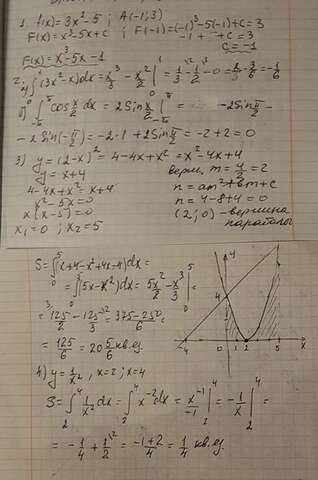 1. f(x)=3x²-5 ; A(-1;3)
F(x)=x³-5x+C ; F(-1)=(-1)³-5(-1)+C=3
-1 + +C=3
C=-1
F(x)=x³-5x-1
2) a) ∫₀¹(3x²-x)dx = x³/3 - x²/2 |₀¹ = 1/3 - 1/2 - 0 = 2-3/6 = -1/6
cos x/2 dx = 2Sin x/2 | = -2Sin π/2 -
-2Sin(-π/2) = -2·1+2Sin π/2 = -2+2=0
3) y=(2-x)²=4-4x+x²=x²-4x+4
y=x+4
верш. m=4/2=2
4-4x+x²=x+4
n=am²+bm+c
x²-5x=0
n=4-8+4=0
x(x-5)=0
(2;0)-вершина
x₁=0 ; x₂=5
параболы
S=∫₀⁵(x+4-x²+4x-4)dx=
=∫₀⁵(5x-x²)dx = 5x²/2 - x³/3 |₀⁵
= 125/2 - 125/3 = 375-250/6 =
= 125/6 = 20 5/6 кв.ед.
4
-4 0 1 2 5 x
4) y=1/x², x=2; x=4
S=∫₂⁴ 1/x² dx = ∫₂⁴ x⁻²dx = x⁻¹/-1 |₂⁴ = -1/x |₂⁴ =
= -1/4 + 1/2 = -1+2/4 = 1/4 кв.ед.